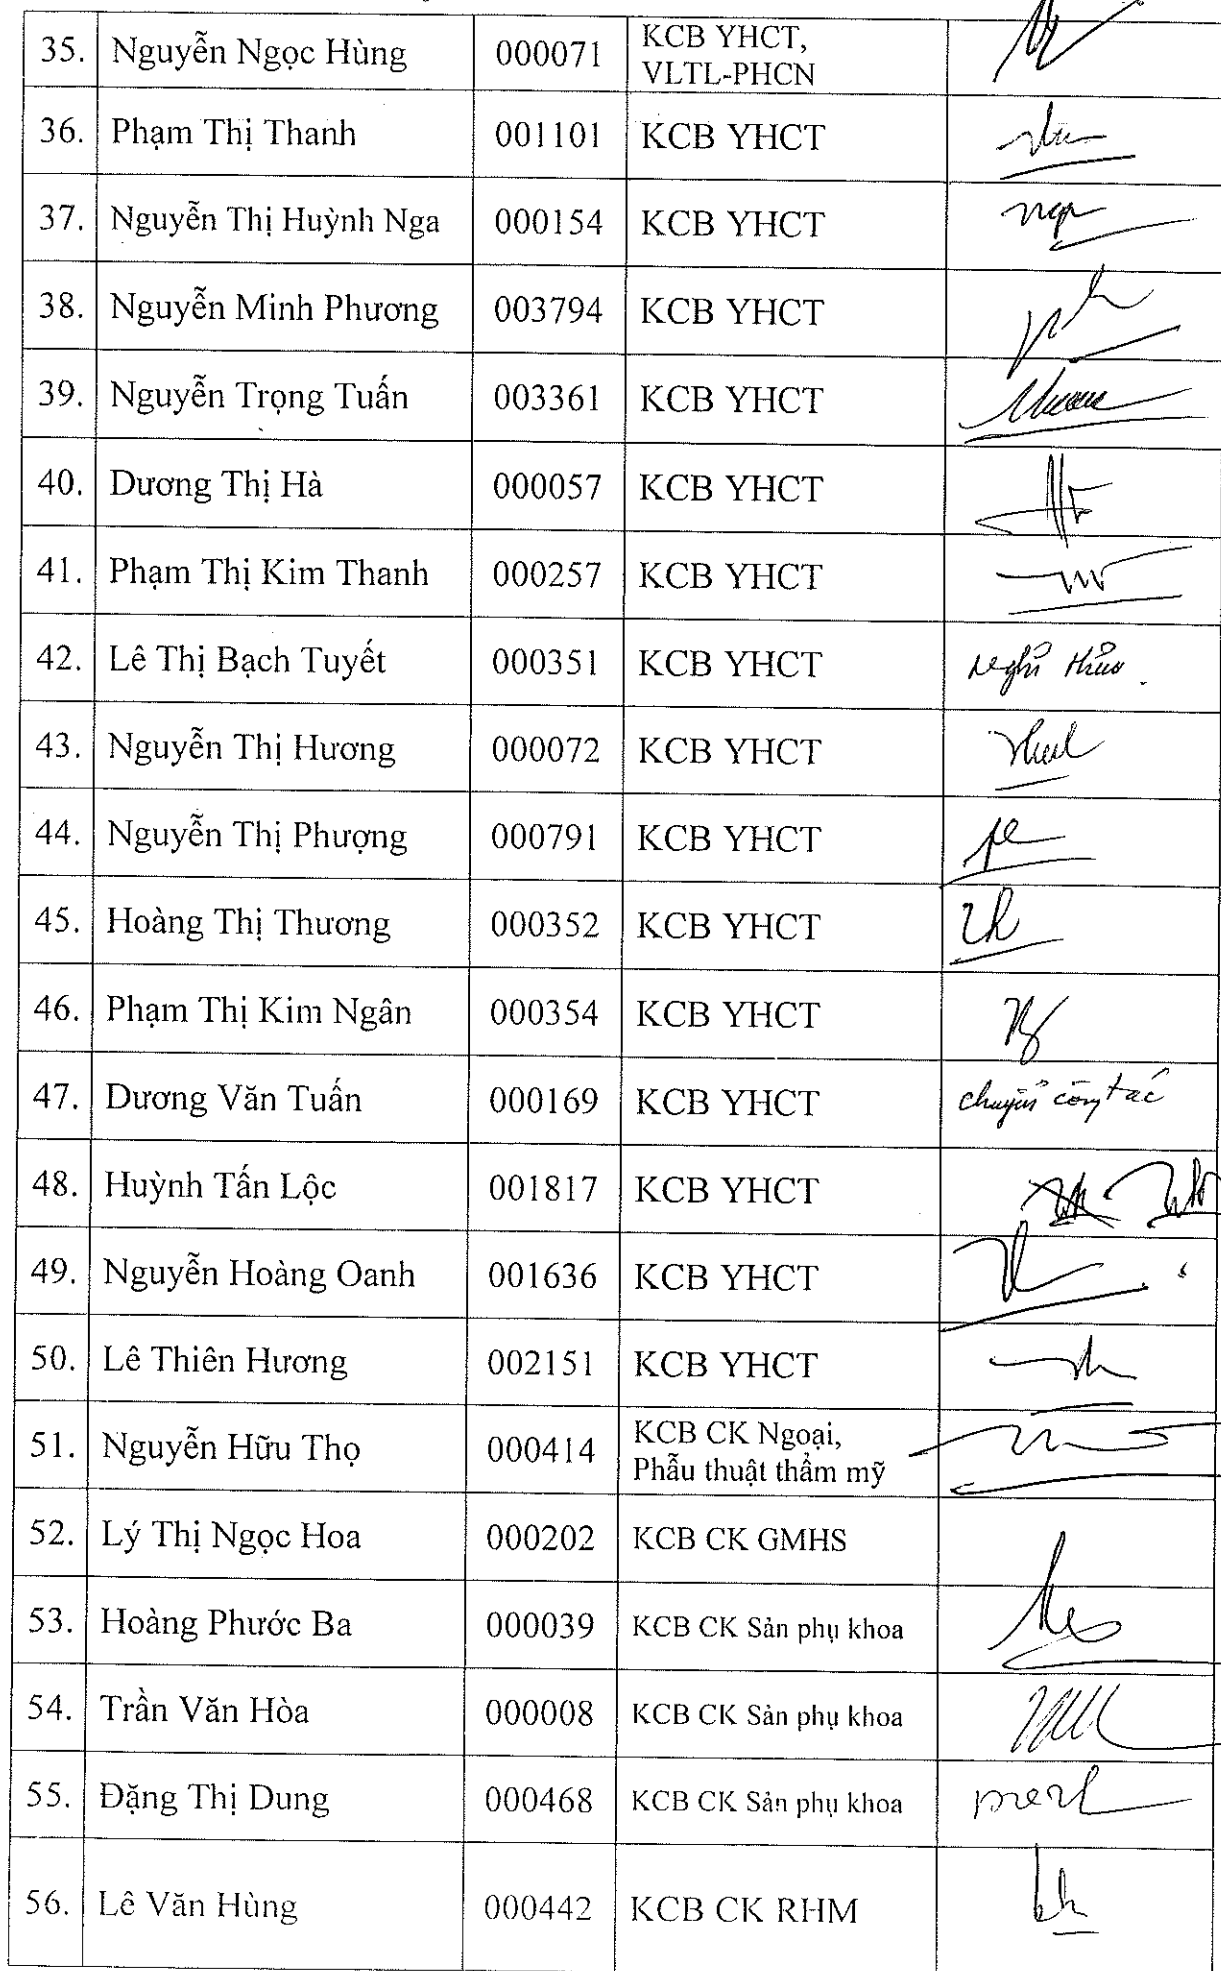 35. Nguyễn Ngọc Hùng 000071 KCB YHCT,
VLTL-PHCN
36. Phạm Thị Thanh 001101 KCB YHCT
37. Nguyễn Thị Huỳnh Nga 000154 KCB YHCT
38. Nguyễn Minh Phương 003794 KCB YHCT
39. Nguyễn Trọng Tuấn 003361 KCB YHCT
40. Dương Thị Hà 000057 KCB YHCT
41. Phạm Thị Kim Thanh 000257 KCB YHCT
42. Lê Thị Bạch Tuyết 000351 KCB YHCT nghỉ
43. Nguyễn Thị Hương 000072 KCB YHCT
44. Nguyễn Thị Phượng 000791 KCB YHCT
45. Hoàng Thị Thương 000352 KCB YHCT
46. Phạm Thị Kim Ngân 000354 KCB YHCT
47. Dương Văn Tuấn 000169 KCB YHCT chuyển công tác
48. Huỳnh Tấn Lộc 001817 KCB YHCT
49. Nguyễn Hoàng Oanh 001636 KCB YHCT
50. Lê Thiên Hương 002151 KCB YHCT
51. Nguyễn Hữu Thọ 000414 KCB CK Ngoại,
Phẫu thuật thẩm mỹ
52. Lý Thị Ngọc Hoa 000202 KCB CK GMHS
53. Hoàng Phước Ba 000039 KCB CK Sản phụ khoa
54. Trần Văn Hòa 000008 KCB CK Sản phụ khoa
55. Đặng Thị Dung 000468 KCB CK Sản phụ khoa
56. Lê Văn Hùng 000442 KCB CK RHM